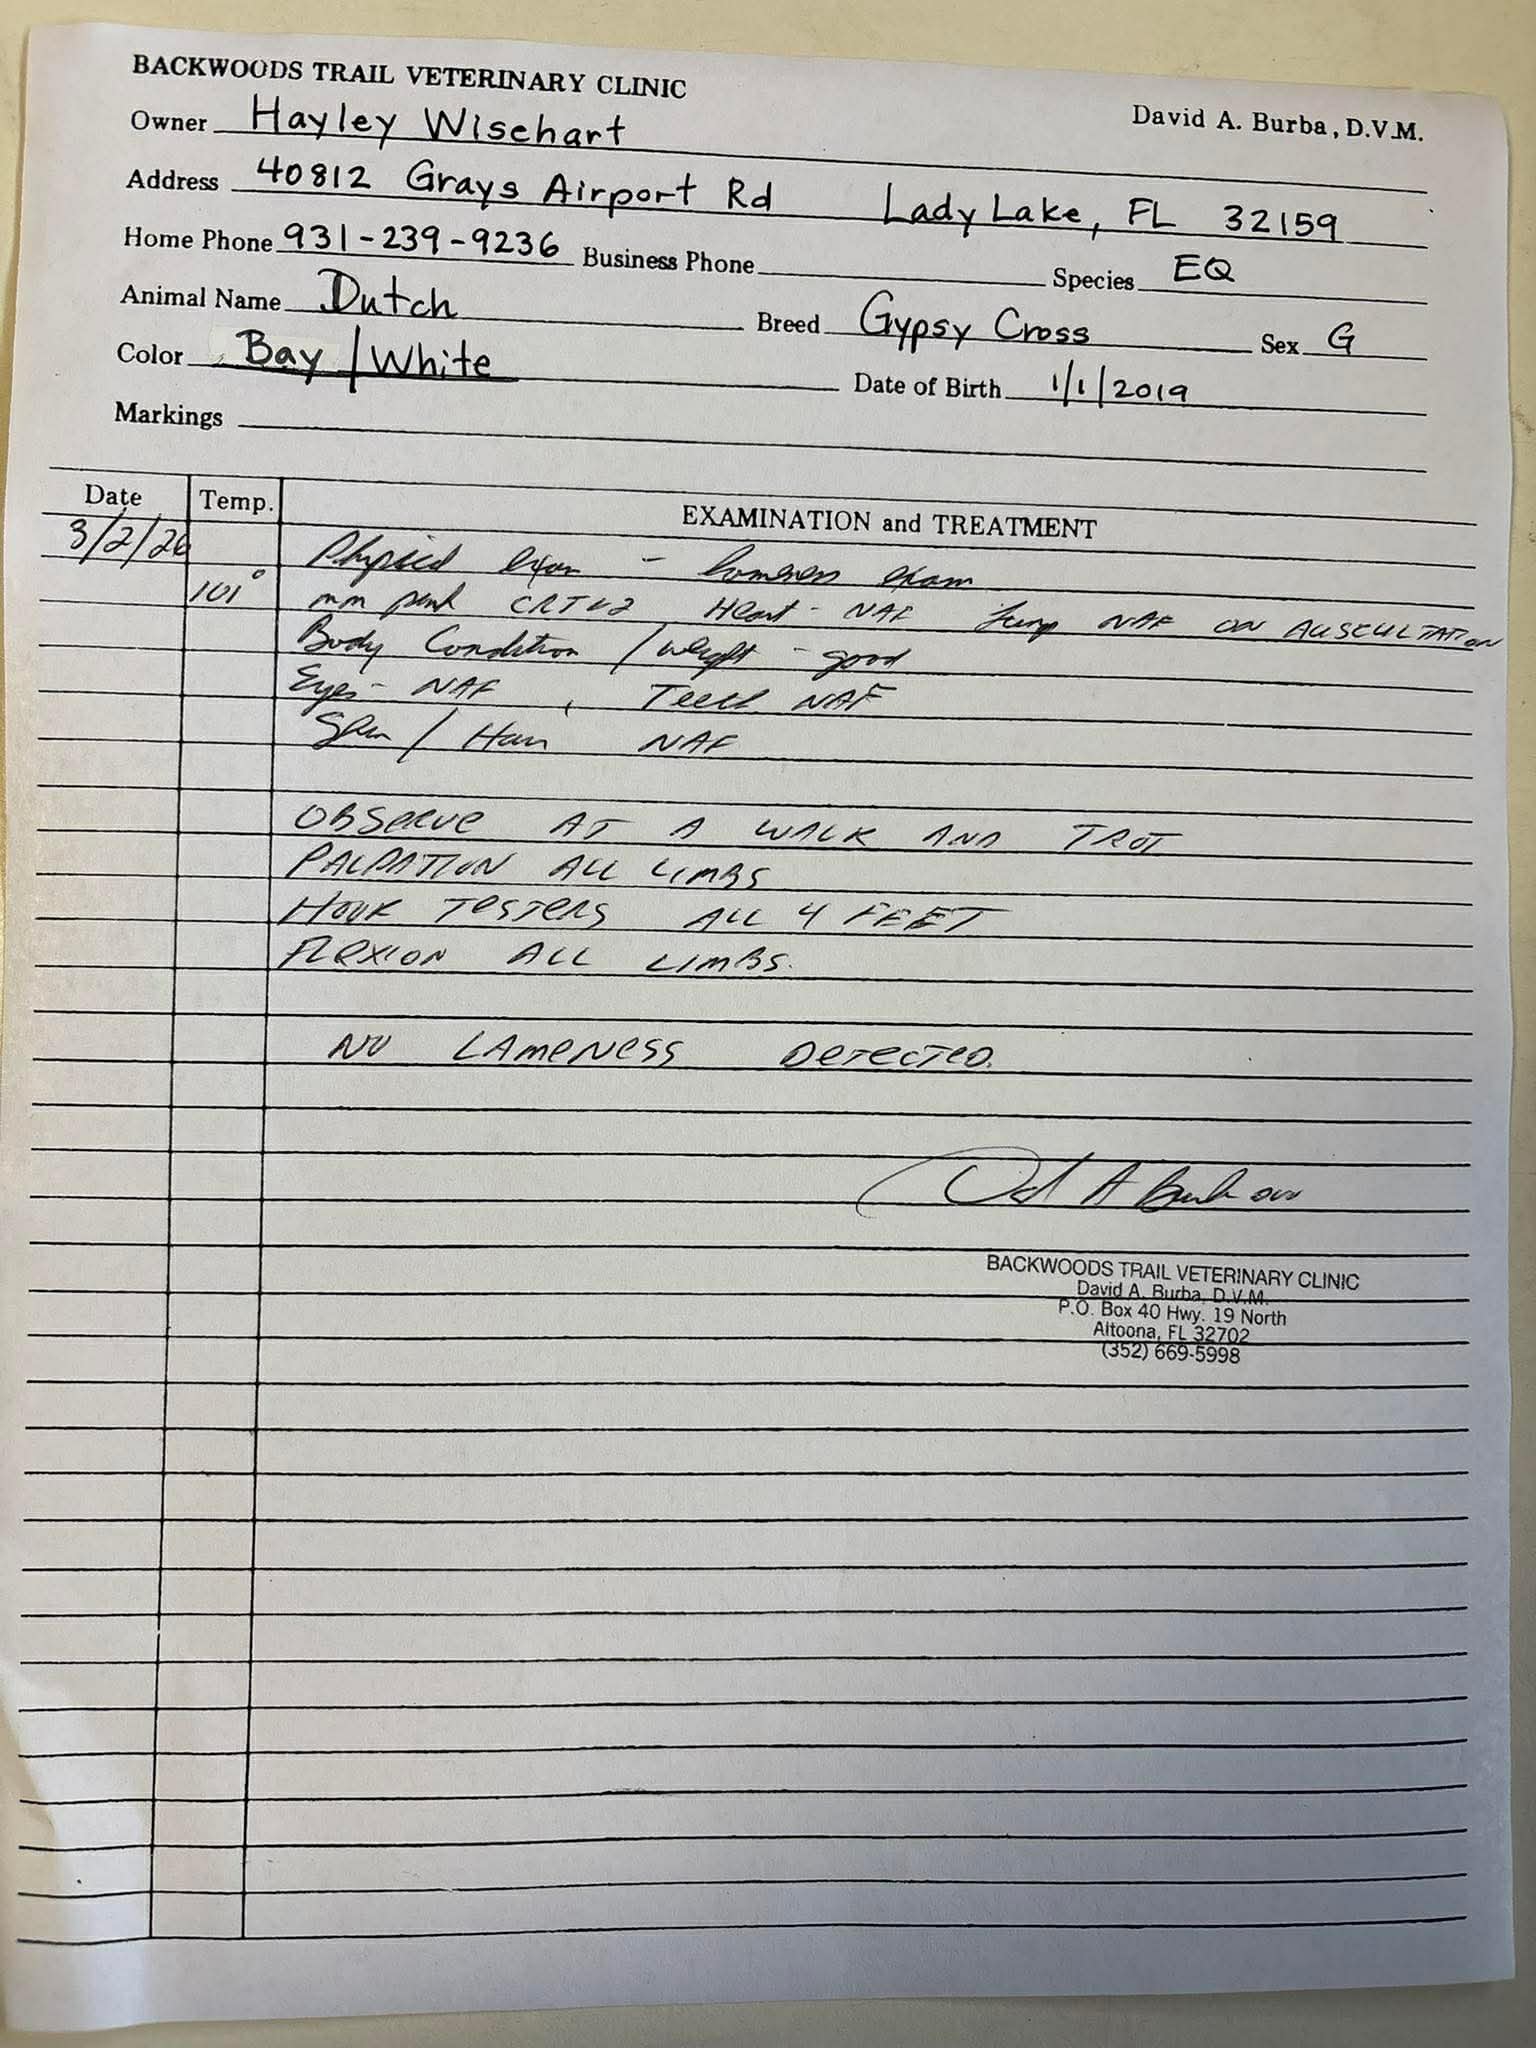 BACKWOODS TRAIL VETERINARY CLINIC
David A. Burba, D.V.M.
Owner Hayley Wisehart
Address 40812 Grays Airport Rd Lady Lake, FL 32159
Home Phone 931-239-9236 Business Phone Species EQ
Animal Name Dutch Breed Gypsy Cross Sex G
Color Bay/White Date of Birth 1/1/2019
Markings
Date Temp. EXAMINATION and TREATMENT
3/2/26 Physical exam - lameness exam
101° mm pink CRT<2 Heart - NAF Lung NAF ON AUSCULTATION
Body Condition / weight - good
Eyes - NAF, Teeth NAF
Skin / Hair NAF
OBSERVE AT A WALK AND TROT
PALPATION ALL LIMBS
HOOF TESTERS ALL 4 FEET
FLEXION ALL LIMBS.
NO LAMENESS DETECTED.
David A Burba DVM
BACKWOODS TRAIL VETERINARY CLINIC
David A. Burba, D.V.M.
P.O. Box 40 Hwy. 19 North
Altoona, FL 32702
(352) 669-5998